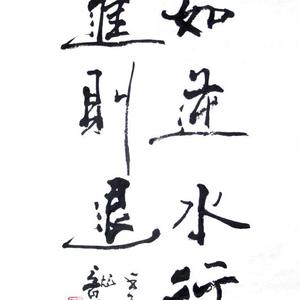 如逆水行
進則退